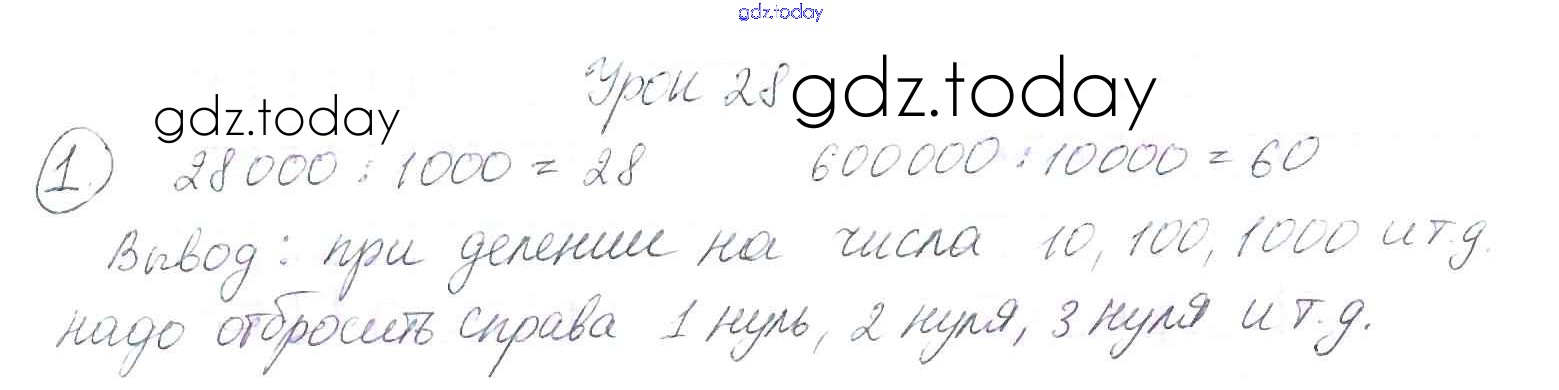 gdz.today
Урок 28 gdz.today
gdz.today
1. 28000 : 1000 = 28 600000 : 10000 = 60
Вывод: при делении на числа 10, 100, 1000 и т.д.
надо отбросить справа 1 нуль, 2 нуля, 3 нуля и т.д.